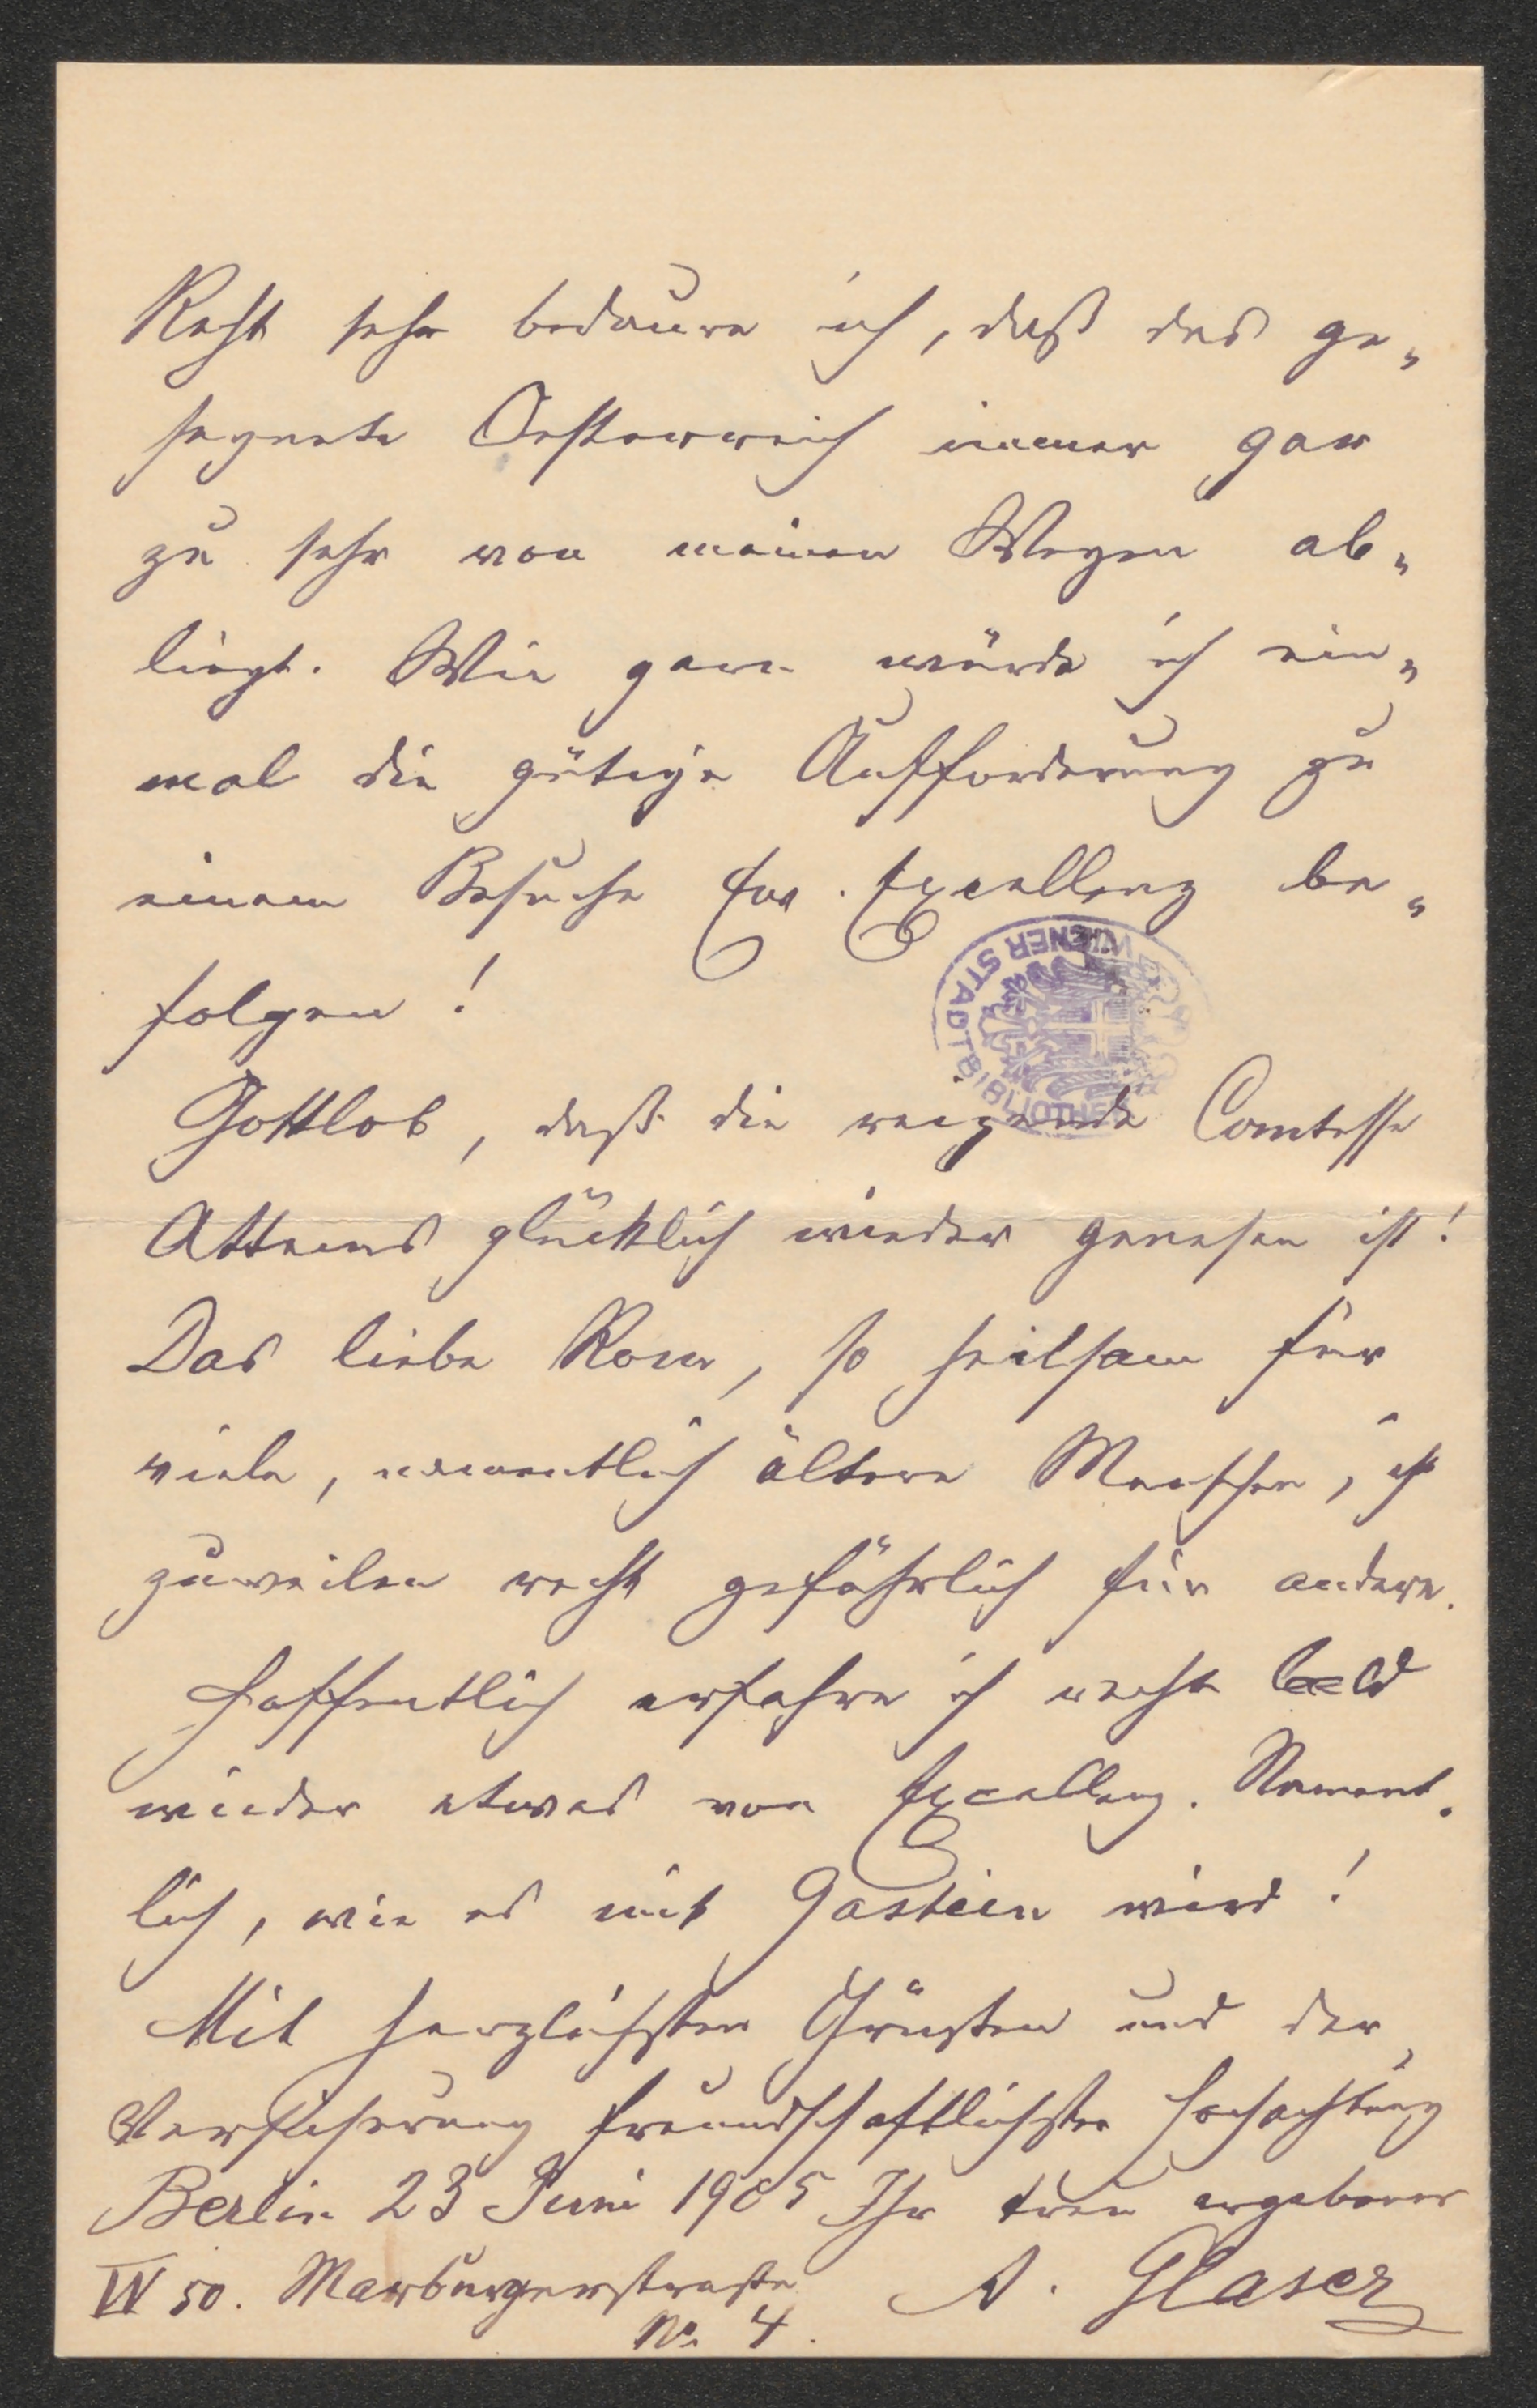 Recht sehr bedaure ich, daß das ge„
segnete Oesterreich immer gar
zu sehr von meinen Wegen ab„
liegt. Wie gern würde ich ein„
mal die gütige Aufforderung zu
einem Besuche Ew. Excellenz be„
folgen!
WIENER STADTBIBLIOTHEK
Gottlob, daß die reizende Comtesse
Attems glücklich wieder genesen ist!
Das liebe Rom, so heilsam für
viele, namentlich ältere Menschen, ist
zuweilen recht gefährlich für andere.
Hoffentlich erfahre ich recht bald
wieder etwas von Excellenz. Nament„
lich, wie es mit Gastein wird!
Mit herzlichsten Grüßen und der
Versicherung freundschaftlichster Hochachtung
Berlin 23 Juni 1905 Ihr treu ergebener
W 50. Marburgerstraße A. Glaser
No. 4.